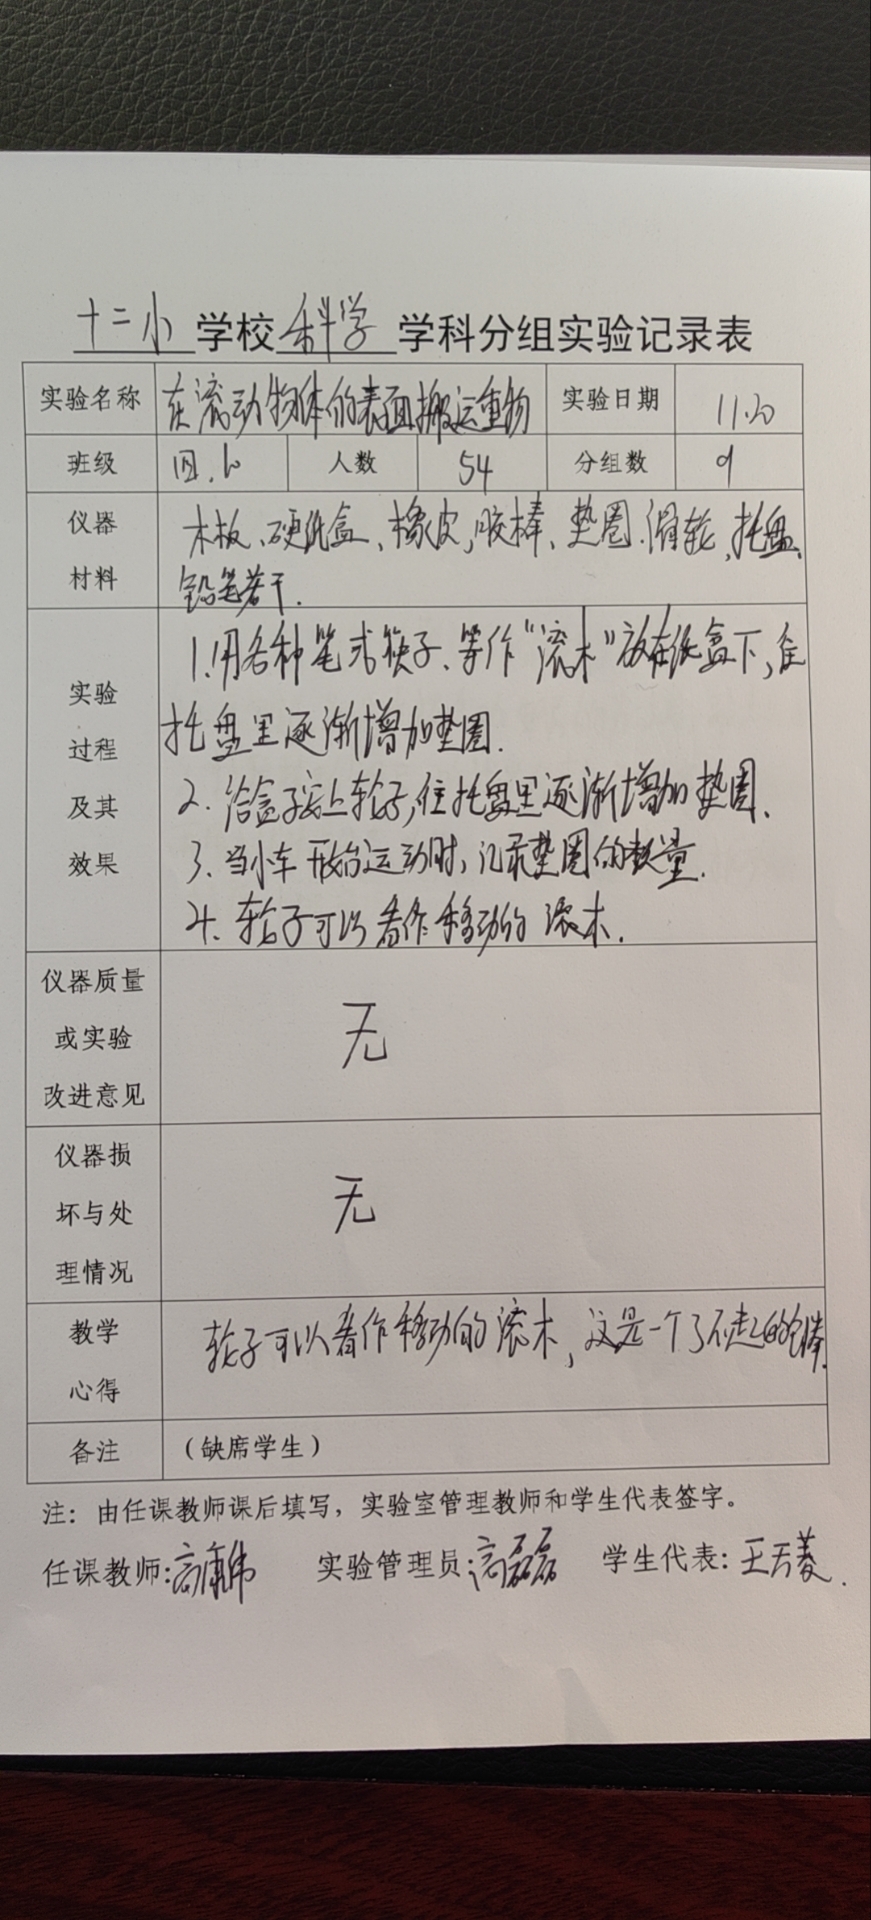 十二小学校科学学科分组实验记录表
实验名称 在滚动物体的表面搬运重物 实验日期 11.20
班级 四.6 人数 54 分组数 9
仪器 木板、硬纸盒、橡皮,胶棒、垫圈.滑轮,托盘,
材料 铅笔若干.
1.用各种笔或筷子、等作“滚木”放在纸盒下,在
实验
托盘里逐渐增加垫圈.
过程
2.给盒子安上轮子,往托盘里逐渐增加垫圈.
及其
效果 3、当小车开始运动时,记录垫圈的数量.
4.轮子可以看作移动的滚木.
仪器质量
或实验 无
改进意见
仪器损
坏与处 无
理情况
教学 轮子可以看作移动的滚木,这是一个了不起的
心得
备注 (缺席学生)
注:由任课教师课后填写,实验室管理教师和学生代表签字。
任课教师: 实验管理员:高磊磊 学生代表:王